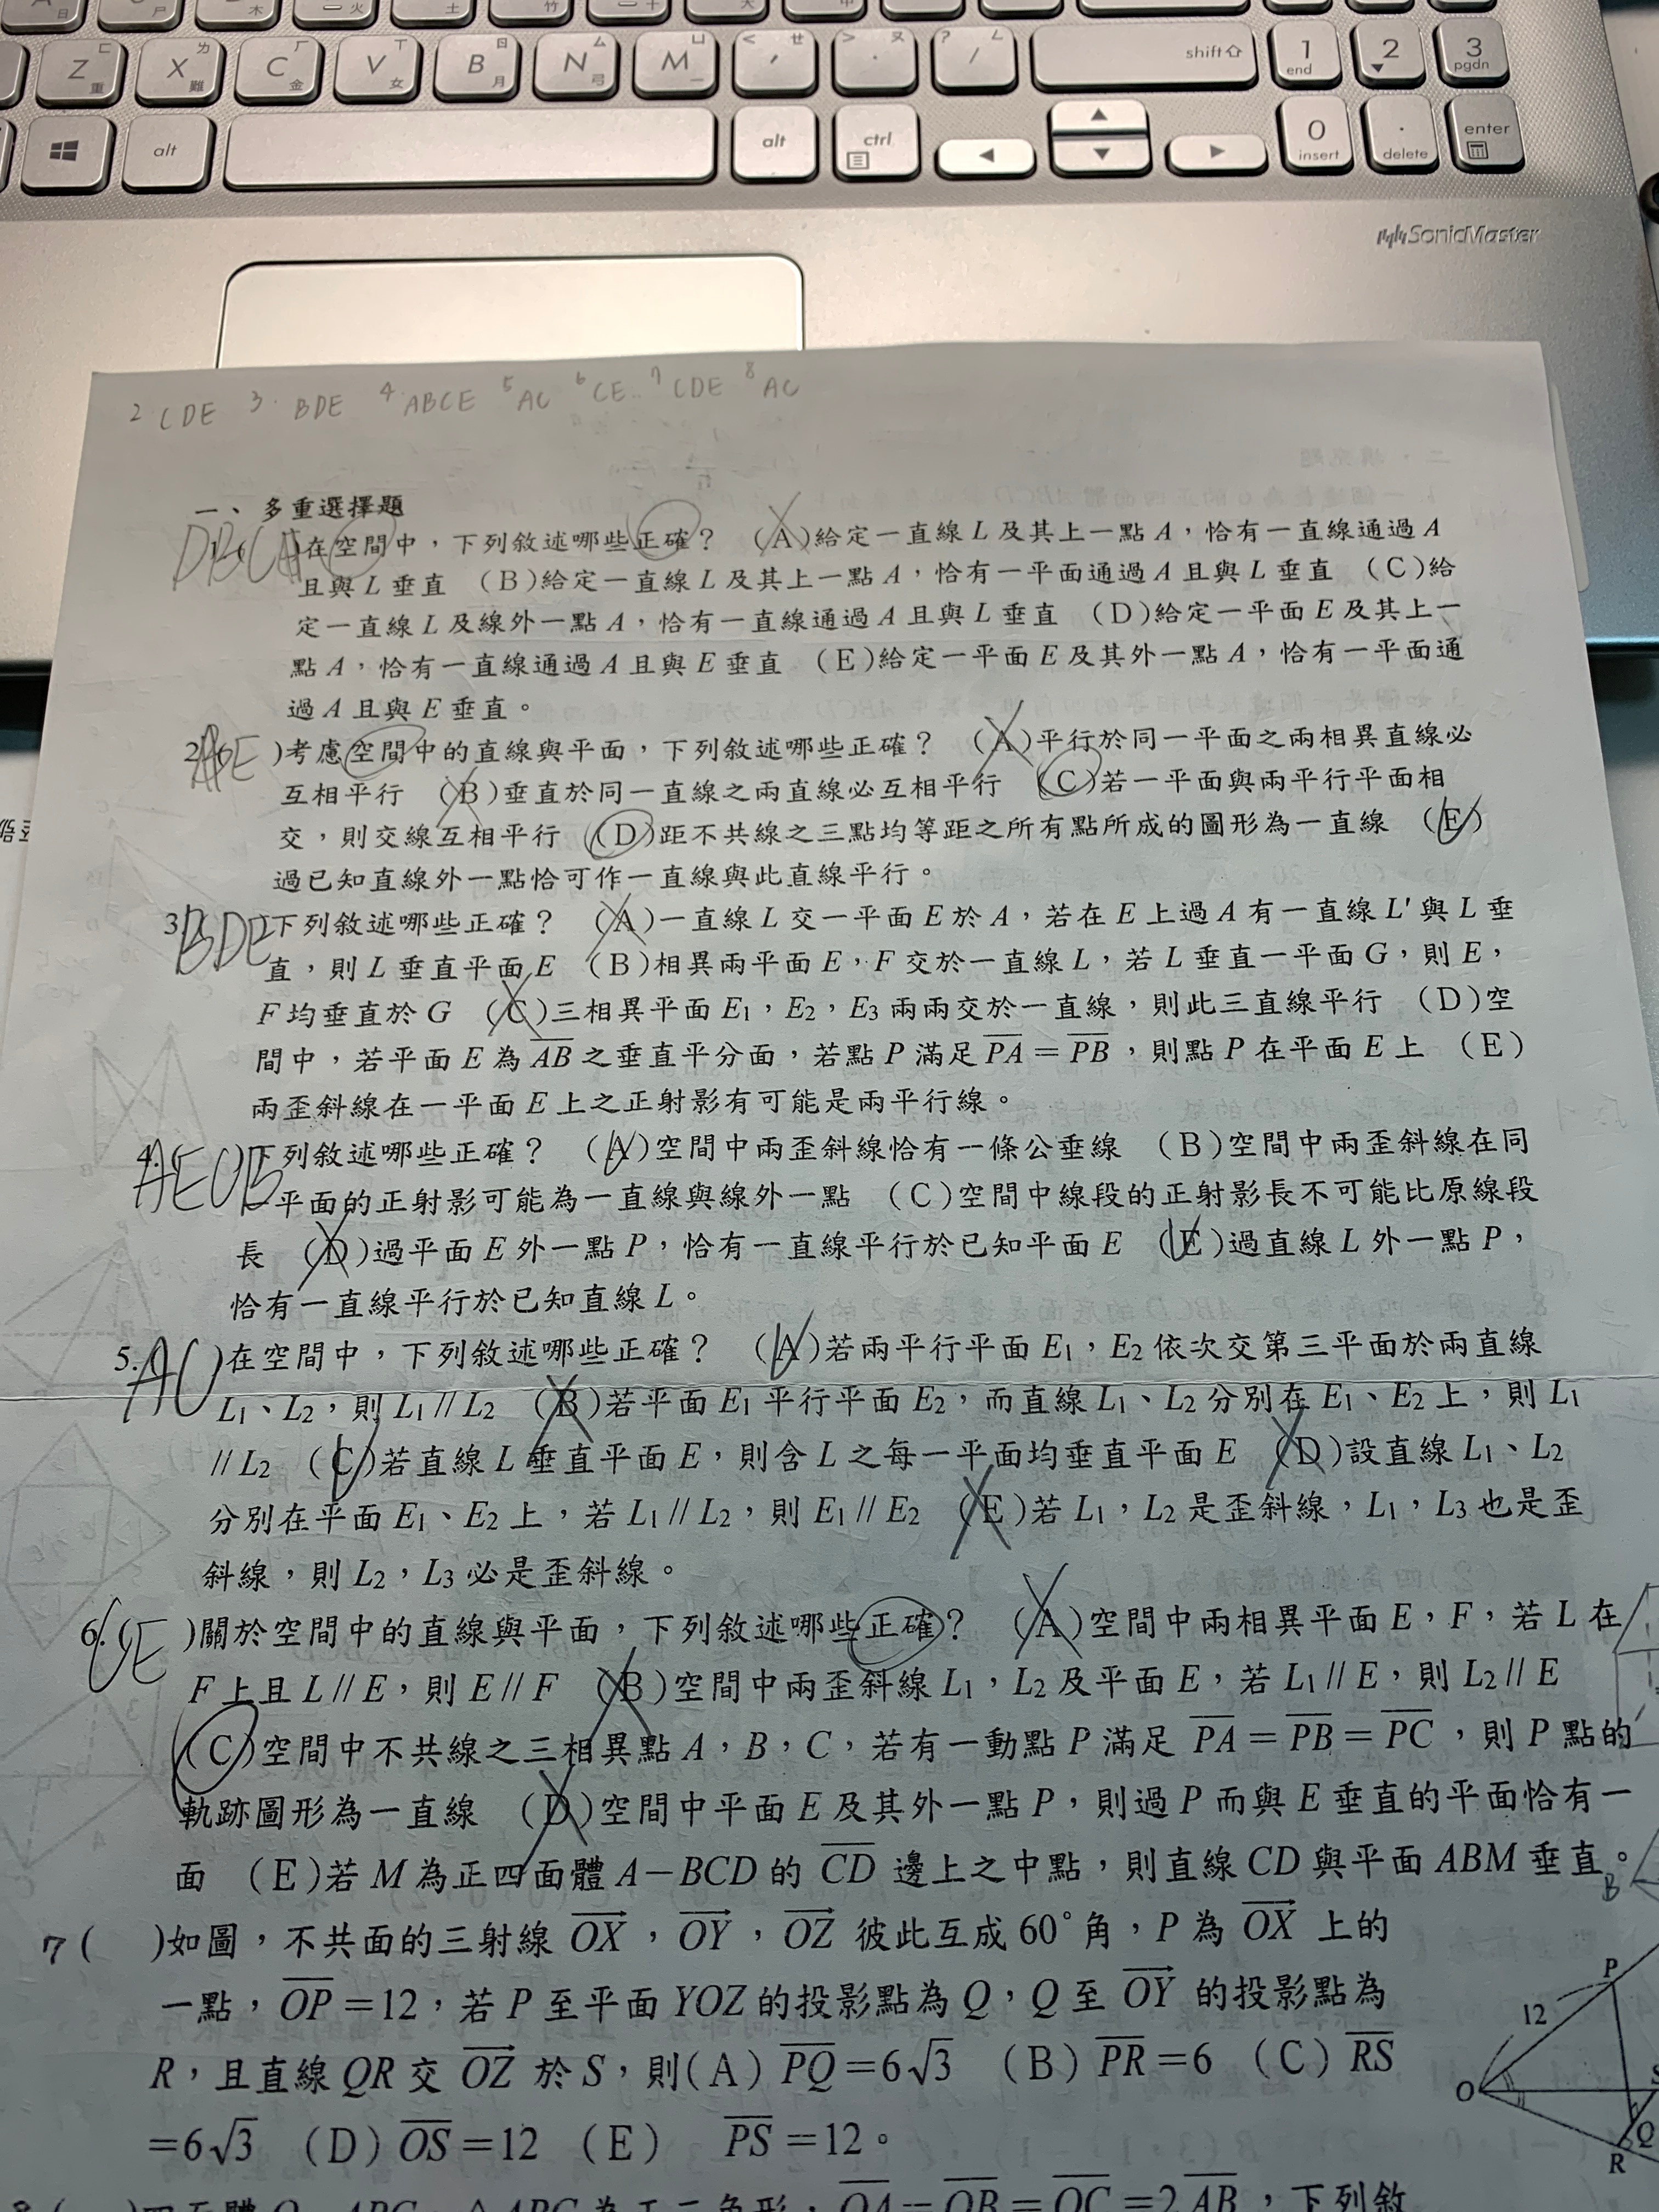 Z 重 ㄈ
X 難 ㄌ
C 金 ㄏ
V 女 ㄒ
B 月 ㄖ
N 弓 ㄙ
M 一 ㄩ
< , ㄝ
> . ㄡ
? / ㄥ
shift
1 end
2
3 pgdn
alt
alt
ctrl
0 insert
. delete
enter
SonicMaster
2 CDE 3. BDE 4 ABCE 5 AC 6 CE 7 CDE 8 AC
一、多重選擇題
)在空間中，下列敘述哪些正確？ (A)給定一直線 L 及其上一點 A，恰有一直線通過 A
且與 L 垂直 (B)給定一直線 L 及其上一點 A，恰有一平面通過 A 且與 L 垂直 (C)給
定一直線 L 及線外一點 A，恰有一直線通過 A 且與 L 垂直 (D)給定一平面 E 及其上一
點 A，恰有一直線通過 A 且與 E 垂直 (E)給定一平面 E 及其外一點 A，恰有一平面通
過 A 且與 E 垂直。
2. )考慮空間中的直線與平面，下列敘述哪些正確？ (A)平行於同一平面之兩相異直線必
互相平行 (B)垂直於同一直線之兩直線必互相平行 (C)若一平面與兩平行平面相
交，則交線互相平行 (D)距不共線之三點均等距之所有點所成的圖形為一直線 (E)
過已知直線外一點恰可作一直線與此直線平行。
3. BDE 下列敘述哪些正確？ (A)一直線 L 交一平面 E 於 A，若在 E 上過 A 有一直線 L' 與 L 垂
直，則 L 垂直平面 E (B)相異兩平面 E，F 交於一直線 L，若 L 垂直一平面 G，則 E，
F 均垂直於 G (C)三相異平面 E₁，E₂，E₃ 兩兩交於一直線，則此三直線平行 (D)空
間中，若平面 E 為 A̅B̅ 之垂直平分面，若點 P 滿足 P̅A̅ = P̅B̅，則點 P 在平面 E 上 (E)
兩歪斜線在一平面 E 上之正射影有可能是兩平行線。
4. AECB 下列敘述哪些正確？ (A)空間中兩歪斜線恰有一條公垂線 (B)空間中兩歪斜線在同
平面的正射影可能為一直線與線外一點 (C)空間中線段的正射影長不可能比原線段
長 (D)過平面 E 外一點 P，恰有一直線平行於已知平面 E (E)過直線 L 外一點 P，
恰有一直線平行於已知直線 L。
5. AC )在空間中，下列敘述哪些正確？ (A)若兩平行平面 E₁，E₂ 依次交第三平面於兩直線
L₁、L₂，則 L₁ // L₂ (B)若平面 E₁ 平行平面 E₂，而直線 L₁、L₂ 分別在 E₁、E₂ 上，則 L₁
// L₂ (C)若直線 L 垂直平面 E，則含 L 之每一平面均垂直平面 E (D)設直線 L₁、L₂
分別在平面 E₁、E₂ 上，若 L₁ // L₂，則 E₁ // E₂ (E)若 L₁，L₂ 是歪斜線，L₁，L₃ 也是歪
斜線，則 L₂，L₃ 必是歪斜線。
6. ( CE )關於空間中的直線與平面，下列敘述哪些正確？ (A)空間中兩相異平面 E，F，若 L 在
F 上且 L // E，則 E // F (B)空間中兩歪斜線 L₁，L₂ 及平面 E，若 L₁ // E，則 L₂ // E
(C)空間中不共線之三相異點 A，B，C，若有一動點 P 滿足 P̅A̅ = P̅B̅ = P̅C̅，則 P 點的
軌跡圖形為一直線 (D)空間中平面 E 及其外一點 P，則過 P 而與 E 垂直的平面恰有一
面 (E)若 M 為正四面體 A－BCD 的 C̅D̅ 邊上之中點，則直線 CD 與平面 ABM 垂直。
7 ( )如圖，不共面的三射線 OX，OY，OZ 彼此互成 60° 角，P 為 OX 上的
一點，O̅P̅ = 12，若 P 至平面 YOZ 的投影點為 Q，Q 至 OY 的投影點為
R，且直線 QR 交 OZ 於 S，則(A) P̅Q̅ = 6√3 (B) P̅R̅ = 6 (C) R̅S̅
= 6√3 (D) O̅S̅ = 12 (E) P̅S̅ = 12。
B
P
12
O
S
Q
R